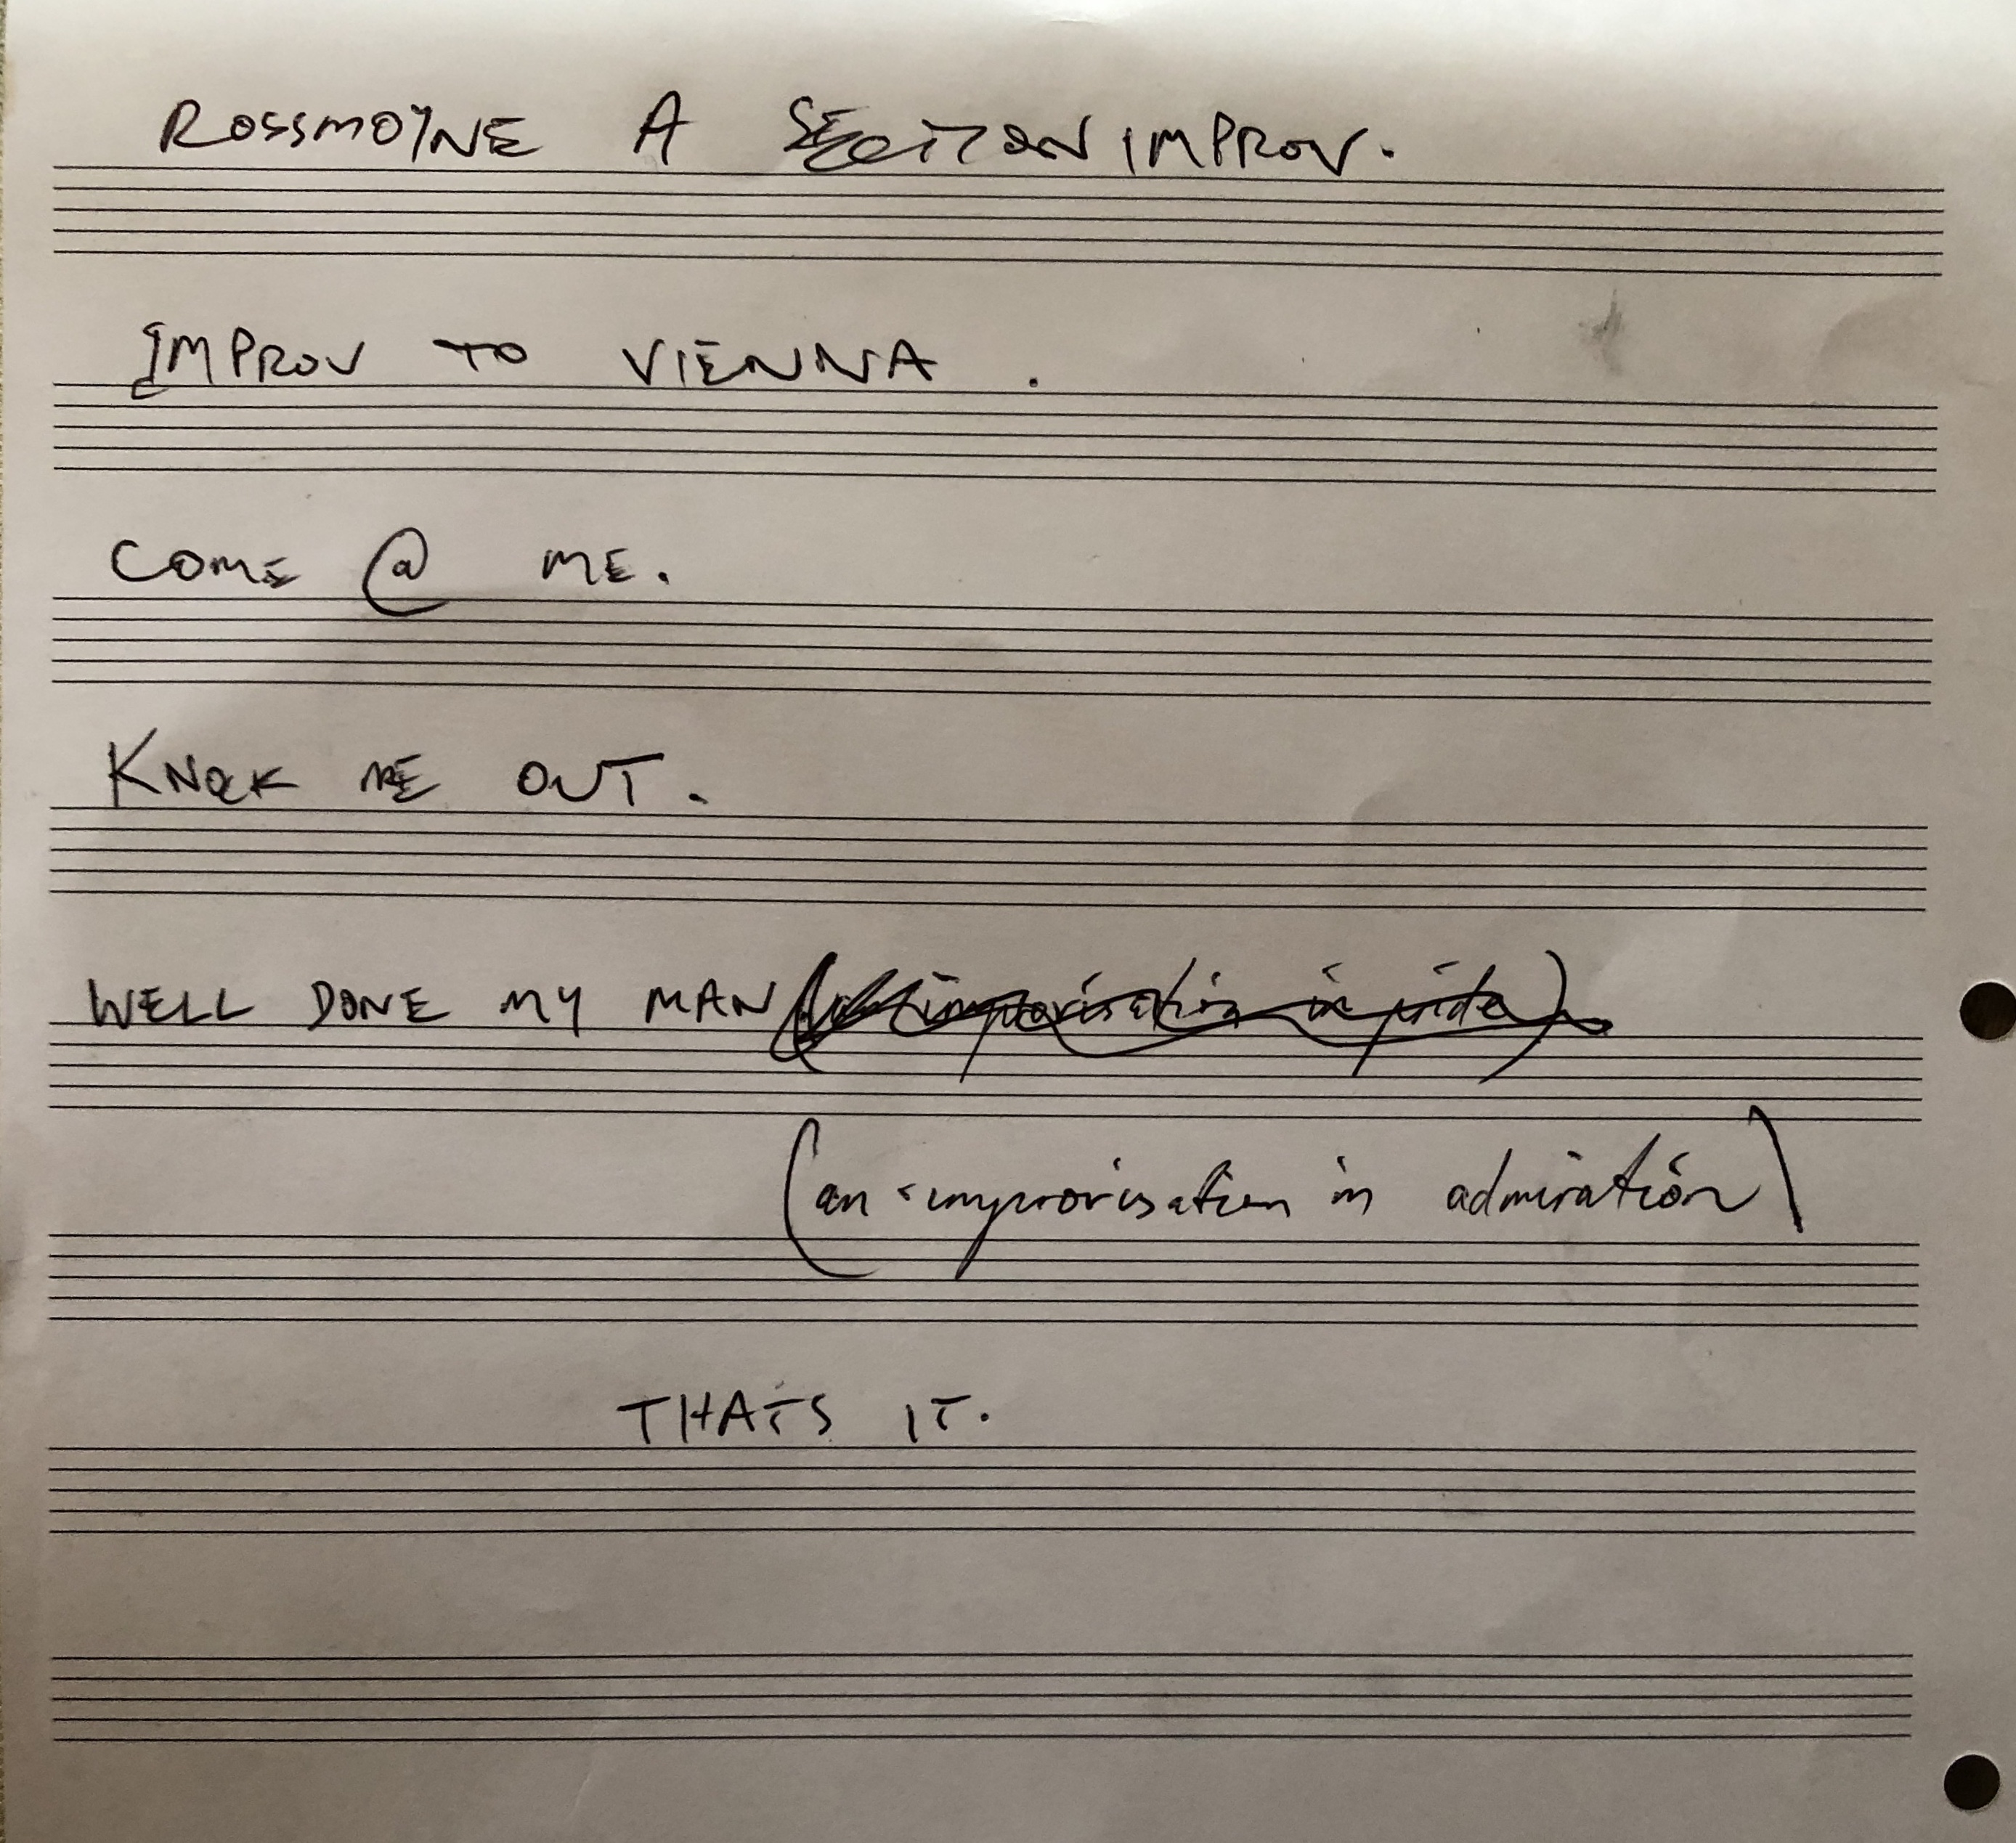 ROSSMOYNE A SECTION IMPROV.
IMPROV TO VIENNA.
COME @ ME.
KNOCK ME OUT.
WELL DONE MY MAN (improvisation in pride)
(an improvisation in admiration)
THATS IT.